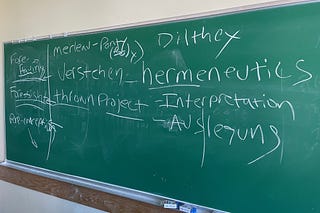 merleau-Ponty Dilthey
Fore-having Verstehen - hermeneutics
Foresight thrown Project - Interpretation
Fore-conception - Auslegung